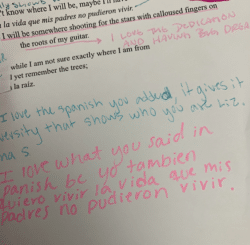 t know where I will be, maybe I'll
la vida que mis padres no pudieron vivir.
I will be somewhere shooting for the stars with calloused fingers on
the roots of my guitar.
I LOVE THE DEDICATION
AND HAVING BIG
while I am not sure exactly where I am from
I yet remember the trees;
la raíz.
I love the spanish you added, it gives it
versity that shows who you are
I love what you said in
panish be yo tambien
quiero vivir la vida que mis
padres no pudieron vivir.